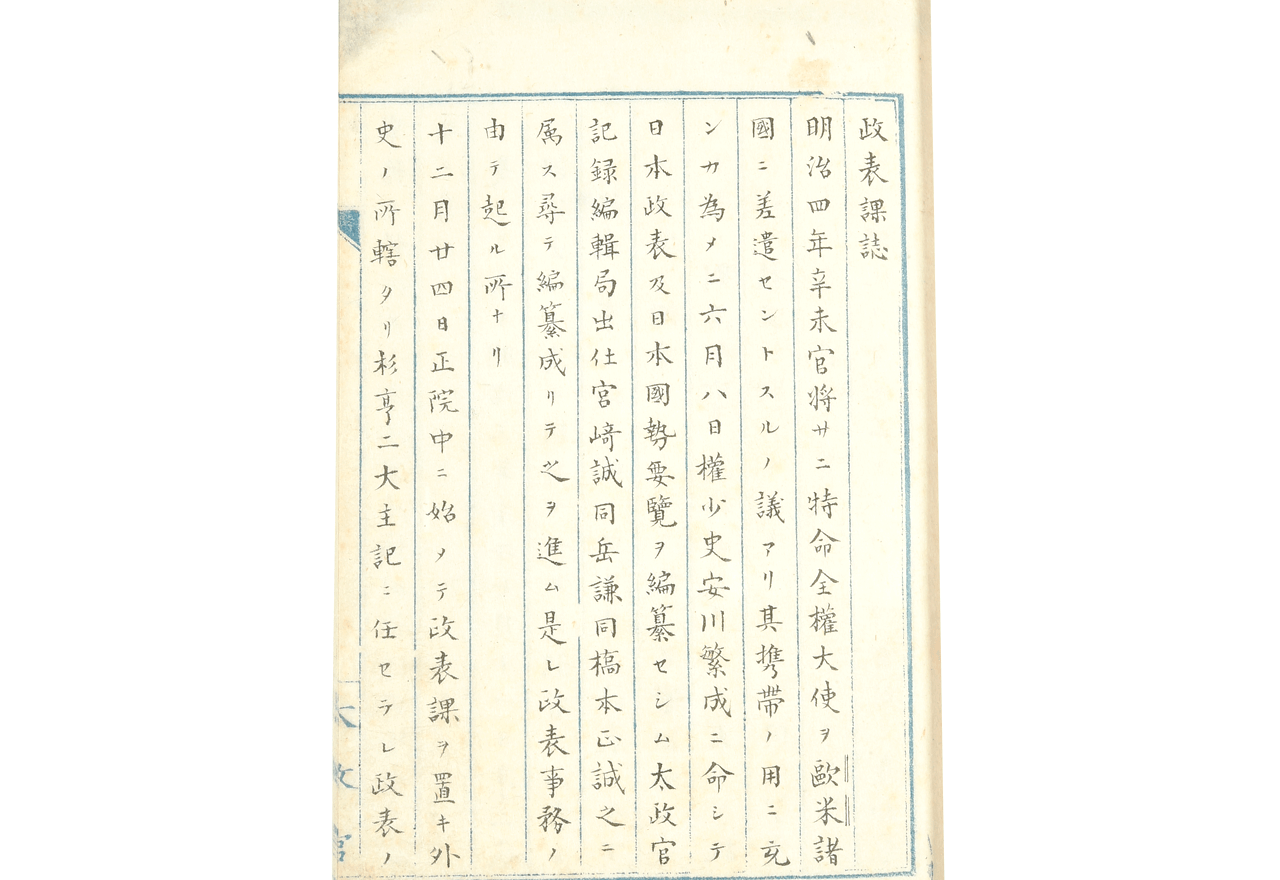 政表課誌
明治四年辛未官将サニ特命全權大使ヲ歐米諸
國ニ差遣セントスルノ議アリ其携帶ノ用ニ充
ンカ為メニ六月八日權少史安川繁成ニ命シテ
日本政表及日本國勢要覽ヲ編纂セシム太政官
記録編輯局出仕宮﨑誠同岳謙同槁本正誠之ニ
属ス尋テ編纂成リテ之ヲ進ム是レ政表事務ノ
由テ起ル所ナリ
十二月廿四日正院中ニ始メテ政表課ヲ置キ外
史ノ所轄タリ杉亨二大主記ニ任セラレ政表ノ